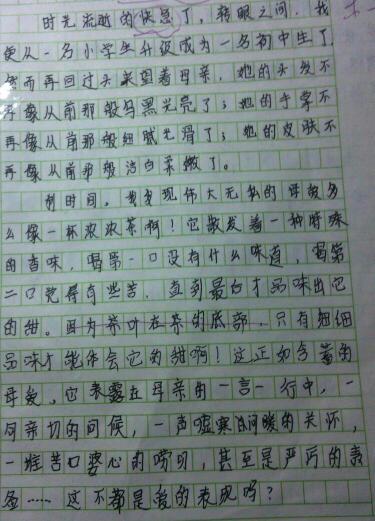 时光流逝的快急了，转眼之间，我
便从一名小学生升级成为一名初中生了
然而再回过头来望着母亲，她的头发不
再像从前那般乌黑光亮了；她的手掌不
再像从前那般细腻光滑了；她的皮肤不
再像从前那般洁白柔嫩了。
刹时间，我发现伟大无私的母爱多
么像一杯浓浓茶啊！它散发着一种特殊
的香味，喝第一口没有什么味道，喝第
二口觉得有些苦，直到最后才品味出它
的甜。因为茶叶在茶的底部，只有细细
品味才能体会它的甜啊！这正如含蓄的
母爱，它表露在母亲的一言一行中，一
句亲切的问候，一声嘘寒问暖的关怀，
一堆苦口婆心的唠叨，甚至是严厉的表
这不都是爱的表现吗？